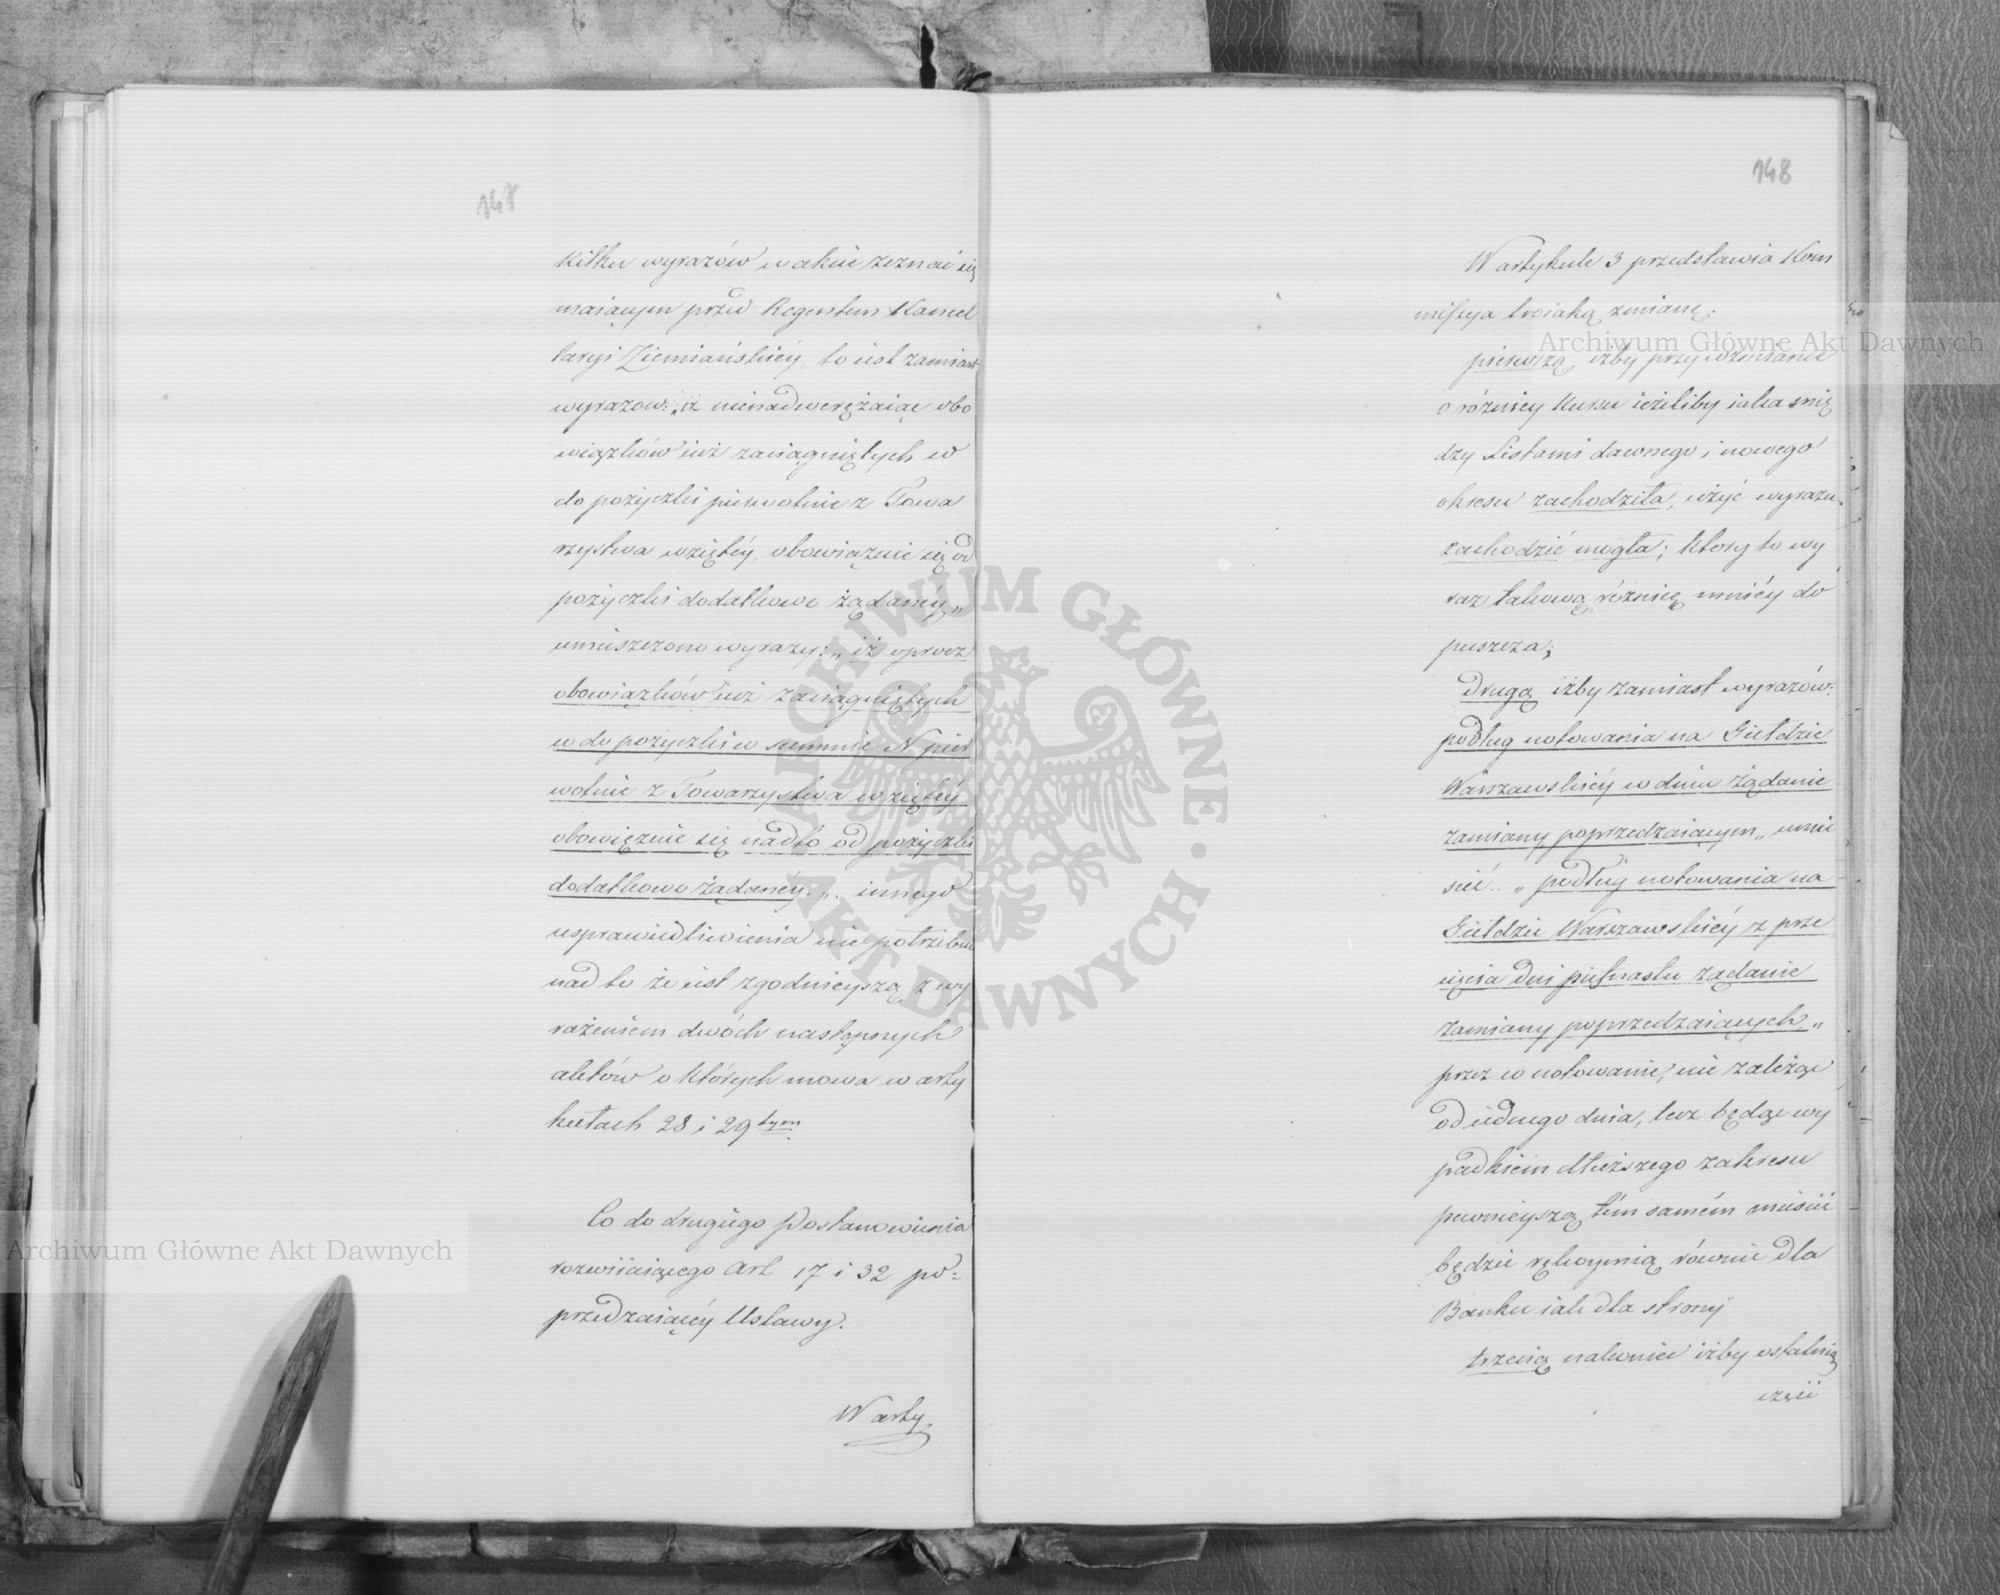 147
kilku wyrazów w akcie zeznać się
maiącym przed Regentem Kancel
laryi Ziemiańskiéy, to iest zamiast
wyrazow: „iż nienadweręžaiąc obo
wiązków iuż zaciągniętych w
do pożyczki pierwotnie z Towa
rzystwa wziętéy, obowiązuie się od
pożyczki dodatkowo żądanéy„
umieszczono wyrazy: „iż oprocz
obowiązków iuż zaciągniętych
w do pożyczki w summie N pier
wotnie z Towarzystwa wziętéy
obowięzuie się nadto od pożyczki
dodatkowo żądanéy.„ innego
usprawiedliwienia nie potrzebuie
nad to że iest zgodnieyszą z wy
rażeniem dwóch następnych
aktów o których mowa w arty
kułach 28 i 29tym.
Co do drugiego Postanowienia
rozwiiaiącego Art 17 i 32 po=
przedzaiącéy Ustawy.
W arty
148
W artykule 3 przedstawia Kom
missya troiaką zmianę.
pierwszą, iżby przy wzmiance
o różnicy kursu ieżeliby iaka mię
dzy Listami dawnego i nowego
okresu zachodziła, użyć wyrazu
zachodzić mogła; który to wy
raz takową różnicę mniéy do
puszcza;
Drugą iżby zamiast wyrazów:
podług notowania na Giełdzie
Warszawskiéy w dniu żądanie
zamiany poprzedzaiącym„ umie
ścić „podług notowania na
Giełdzie Warszawskiéy z prze
cięcia dni piętnastu żądanie
zamiany poprzedzaiących„
przez co notowanie, nie zależąc
od iednego dnia, lecz będąc wy
padkiem dłuższego zakresu
pewnieyszą tém samém mieścić
będzie rękoymią równie dla
Banku iak dla strony
trzecią nakoniec iżby ostatnią
część
Archiwum Główne Akt Dawnych
Archiwum Główne Akt Dawnych
ARCHIWUM GŁÓWNE AKT DAWNYCH